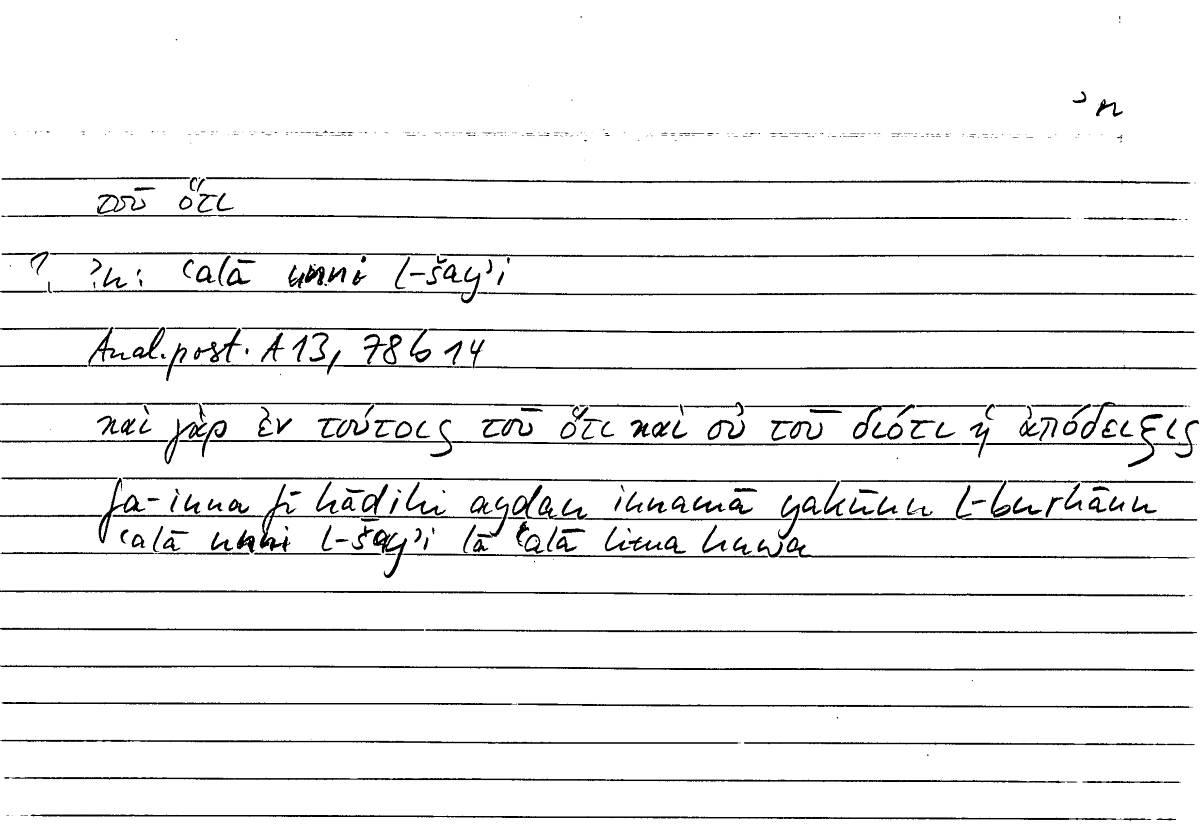 ʾn
τοῦ ὅτι
? ʾn: ʿalā anni l-šayʾi
Anal. post. A 13, 78 b 14
καὶ γὰρ ἐν τούτοις τοῦ ὅτι καὶ οὐ τοῦ διότι ἡ ἀπόδειξις
fa-inna fī hādihi aydan innamā yakūnu l-burhānu
ʿalā anni l-šayʾi lā ʿalā lima huwa